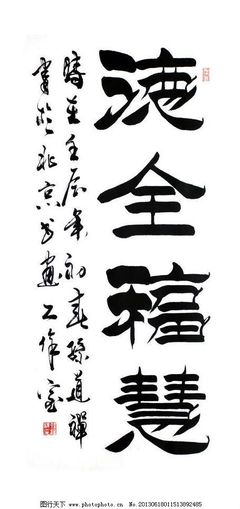 海全福慧
時在壬辰年初春孫道禪
書於北京書畫工作室
图行天下 www.photophoto.cn No.20130618011513892485